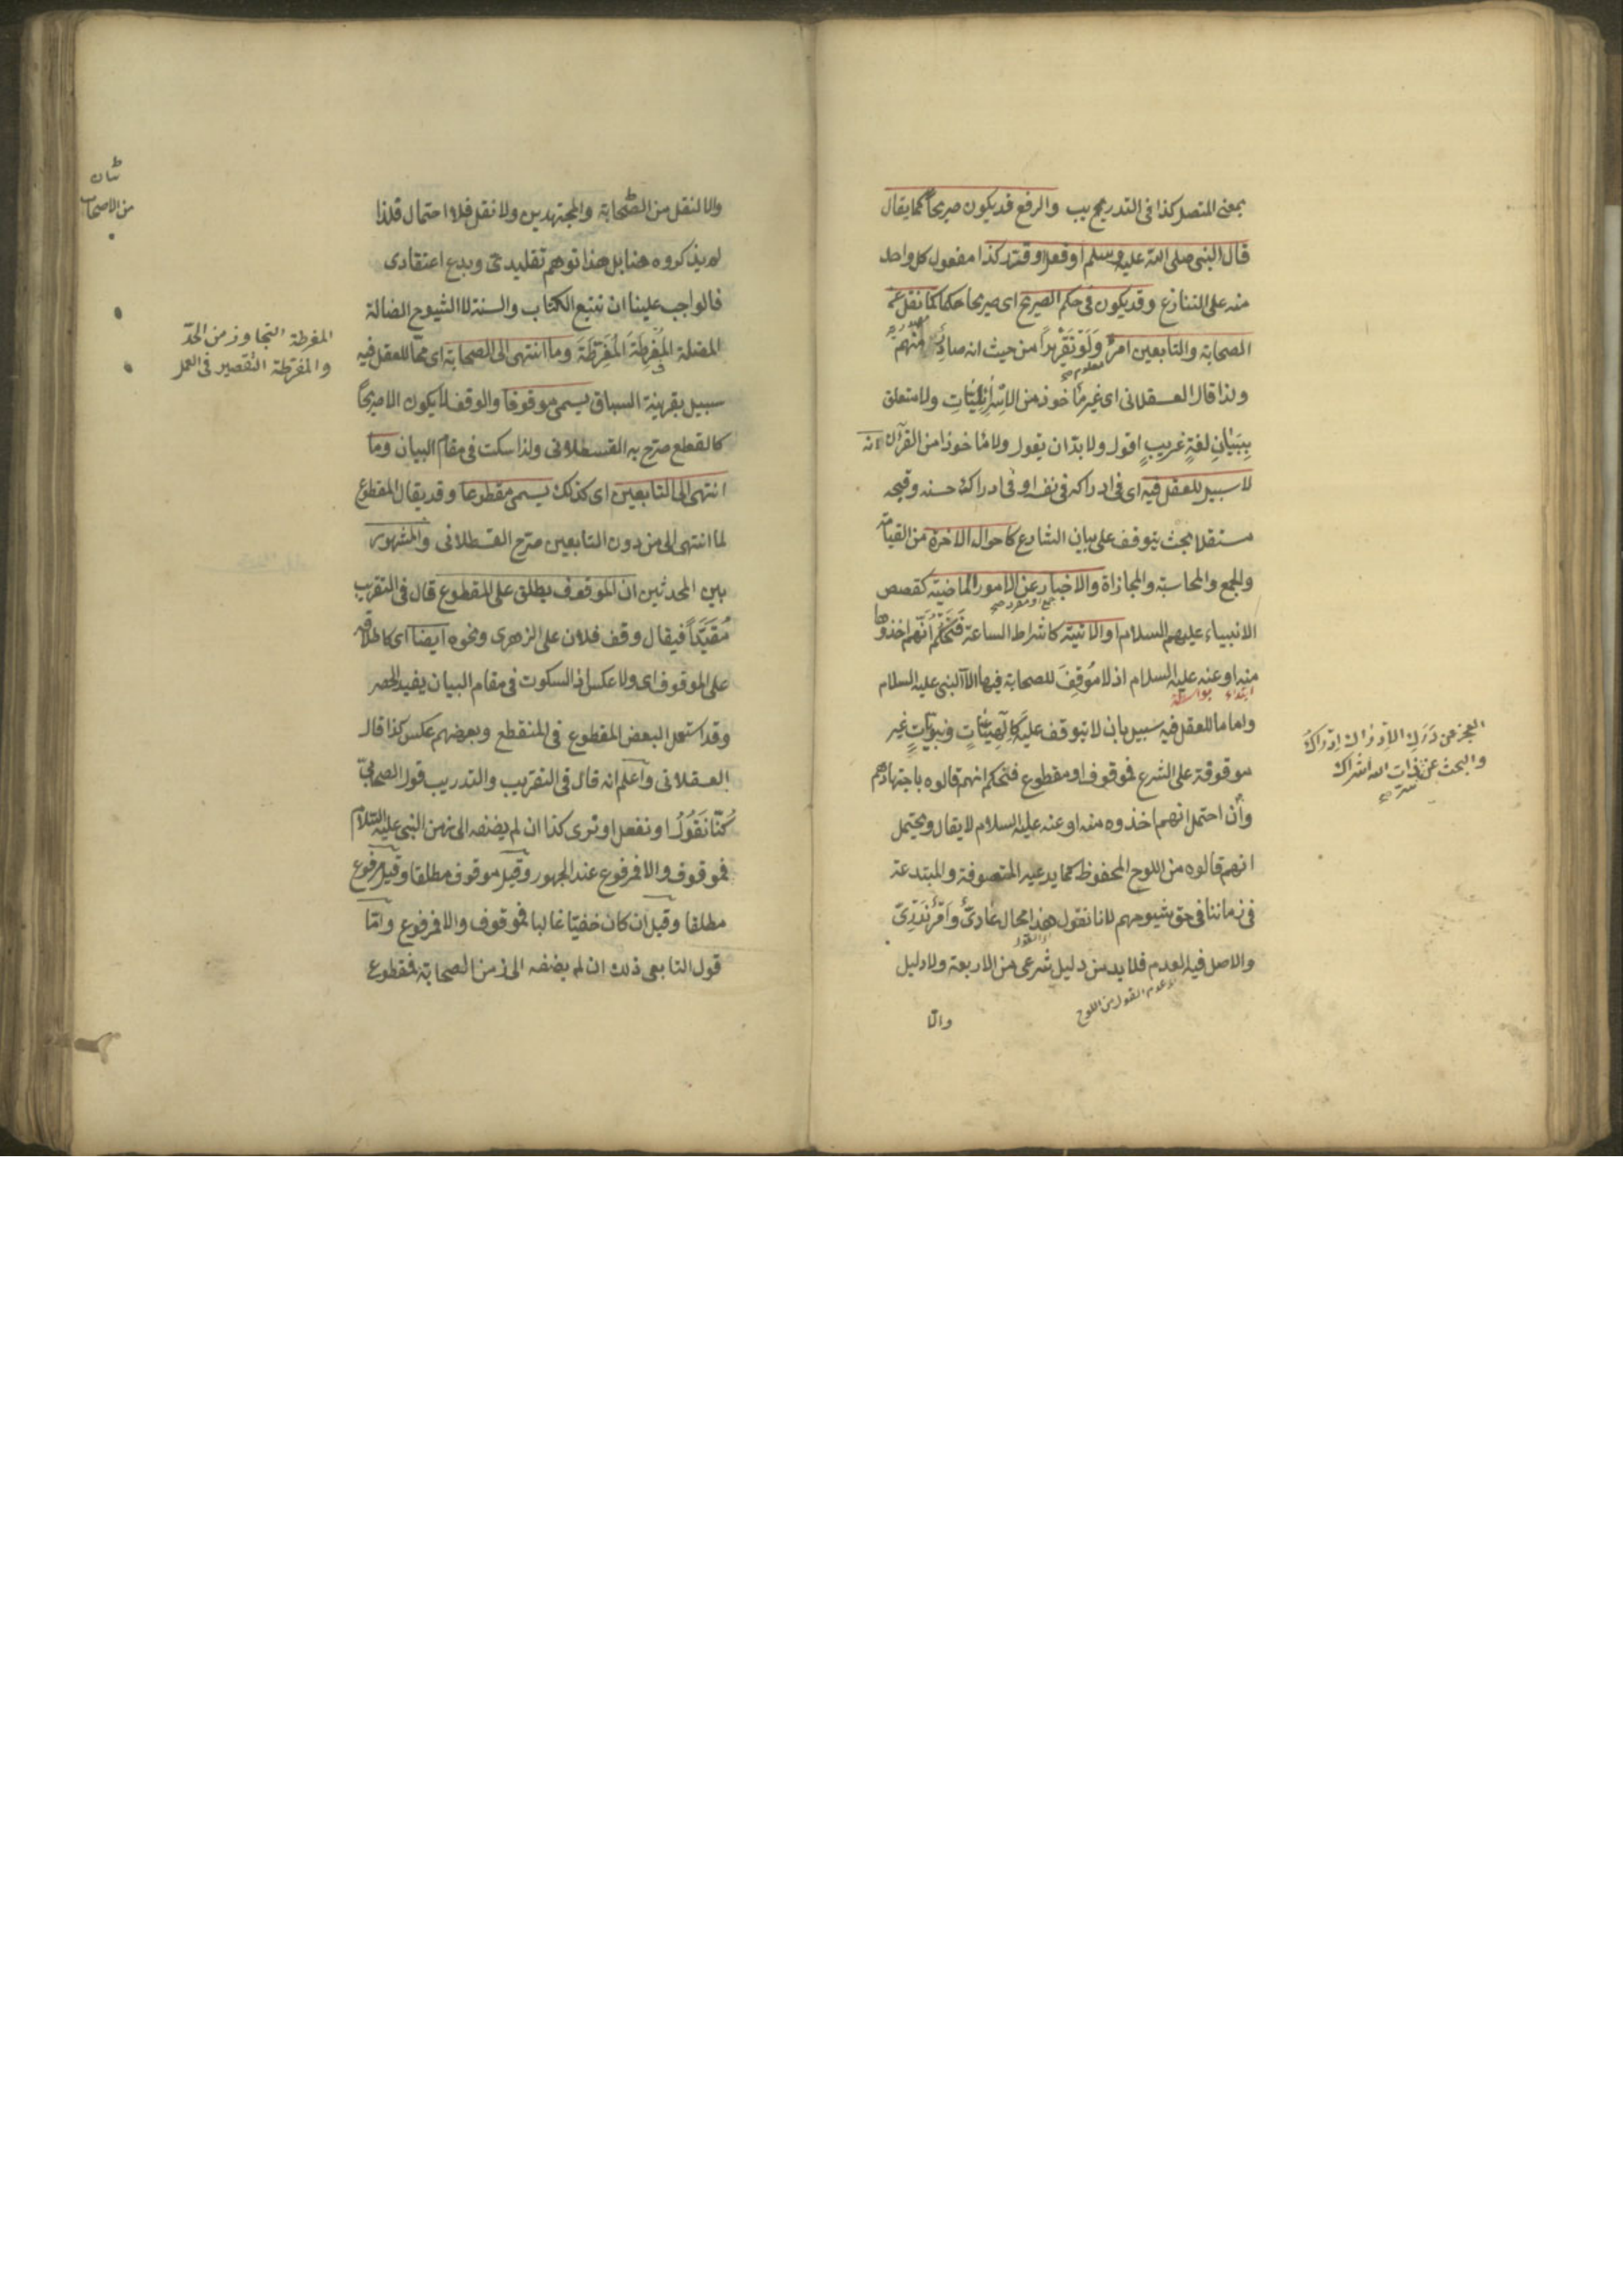 بمعنى المتصل كذا فى التدريب والرفع قد يكون صريحا كما يقال
قال النبى صلى الله عليه وسلم او فعل او قرر كذا مفعول كل واحد
منه على التنازع وقد يكون فى حكم الصريح اى صريحا حكما كما نقل عن
الصحابة والتابعين امر ولو تقريرا من حيث انه صادر منهم
ولذا قال العسقلانى اى غير مأخوذ من الاسرائيليات ولا متعلق
ببيان لغة غريب اقول ولا بد ان يقول ولا مأخوذا من القرآن لانه
لا سبيل للعقل فيه اى فى ادراكه فى نفسه او فى ادراك حسنه وقبحه
مستقلا بحيث يتوقف على بيان الشارع كاحوال الاخرة من القيامة
والجمع والمحاسبة والمجازاة والاخبار عن الامور الماضية كقصص
الانبياء عليهم السلام او الاتية كاشراط الساعة فتحكم انهم اخذوها
منه او عنه عليه السلام اذ لا موقف للصحابة فيها الا النبى عليه السلام
ابتداء بواسطة
واما ما للعقل فيه سبيل بان لا يتوقف عليه كالهيات ونبوات غير
موقوفة على الشرع فموقوف او مقطوع فتحكم انهم قالوه باجتهادهم
وان احتمل انهم اخذوه منه او عنه عليه السلام لا يقال ويحتمل
انهم قالوه من اللوح المحفوظ كما يدعيه المتصوفة والمبتدعة
فى زماننا فى حق شيوخهم لانا نقول هذا محال عادى وامر
والاصل فيه العدم فلا بد من دليل شرعى من الاربعة ولا دليل
عدم القول من اللوح
والا
العجز عن درك الادراك ادراك
والبحث عن سر ذات الله اشراك
والا لنقل من الصحابة والمجتهدين ولا نقل فلا احتمال فلذا
لم يذكروه هنا بل هذا توهم تقليدى وبدع اعتقادى
فالواجب علينا ان نتبع الكتاب والسنة لا الشيوخ الضالة
المضلة المفرطة المفرطة وما انتهى الى الصحابة اى مما للعقل فيه
سبيل بقرينة السباق يسمى موقوفا والوقف لا يكون الا صريحا
كالقطع صرح به القسطلانى ولذا سكت فى مقام البيان وما
انتهى الى التابعين اى كذلك يسمى مقطوعا وقد يقال المقطوع
لما انتهى الى من دون التابعين صرح القسطلانى والمشهور
بين المحدثين ان الموقوف يطلق على المقطوع قال فى التقريب
مقيدا فيقال وقف فلان على الزهرى ونحوه ايضا اى كاطلاقه
على الموقوف اى ولا عكس اذ السكوت فى مقام البيان يفيد الحصر
وقد استعمل البعض المقطوع فى المنقطع وبعضهم عكس كذا قال
العسقلانى واعلم انه قال فى التقريب والتدريب قول الصحابى
كنا نقول او نفعل او نرى كذا ان لم يضفه الى زمن النبى عليه السلام
فموقوف والا فمرفوع عند الجمهور وقيل موقوف مطلقا وقيل مرفوع
مطلقا وقيل ان كان خفيا غالبا فموقوف والا فمرفوع واما
قول التابعى ذلك ان لم يضفه الى زمن الصحابة فمقطوع
المفرطة التجاوز من الحد
والمفرطة التقصير فى العمل
من الاصحاب